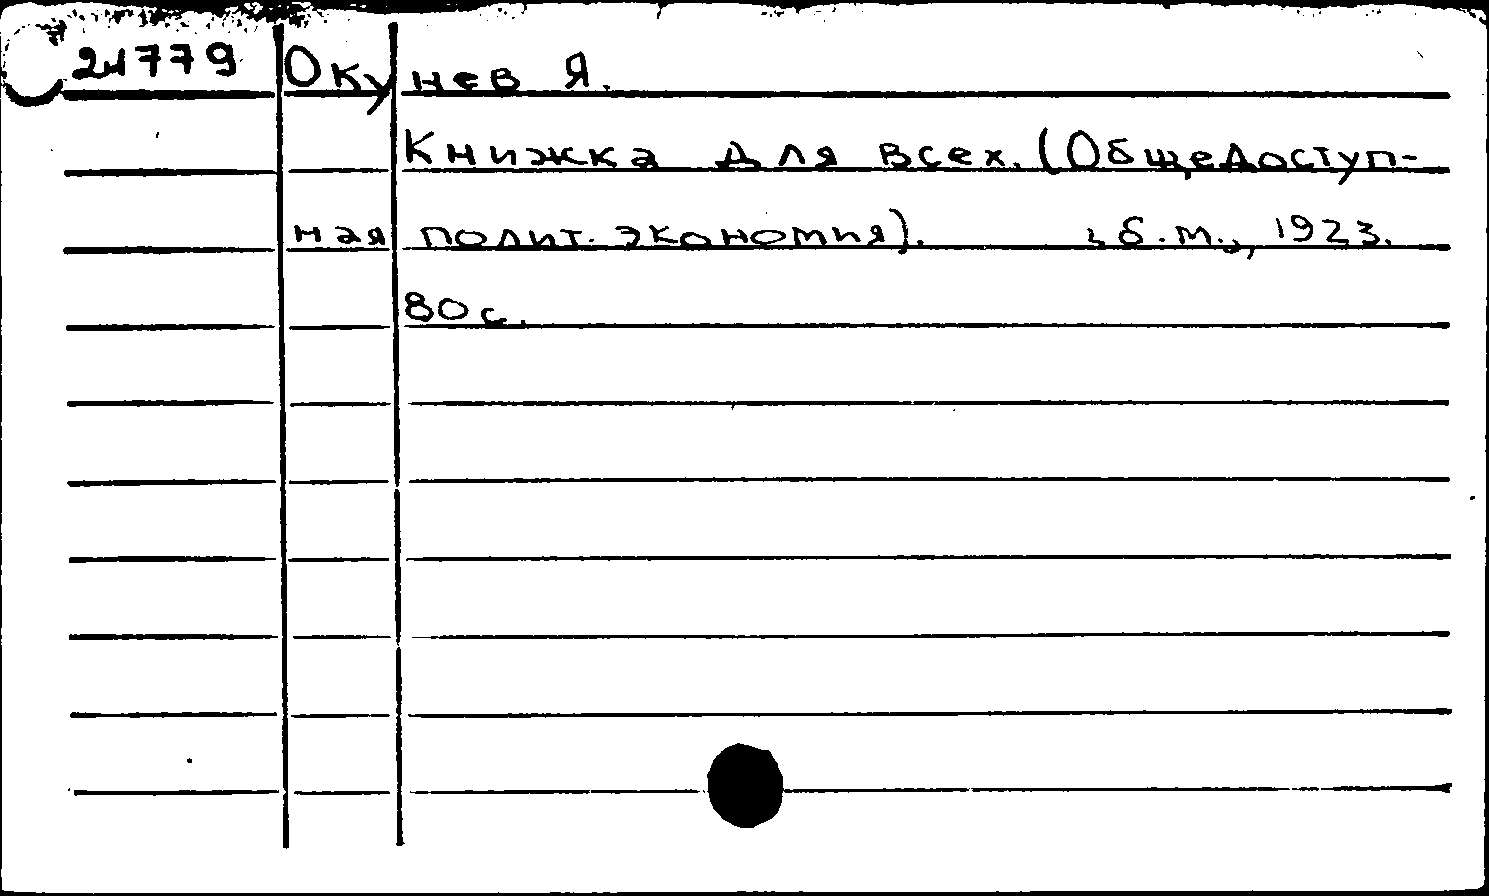 24779 Окунев Я.
Книжка для всех. (Общедоступ-
ная полит. экономия). [б.м.], 1923.
80 с.